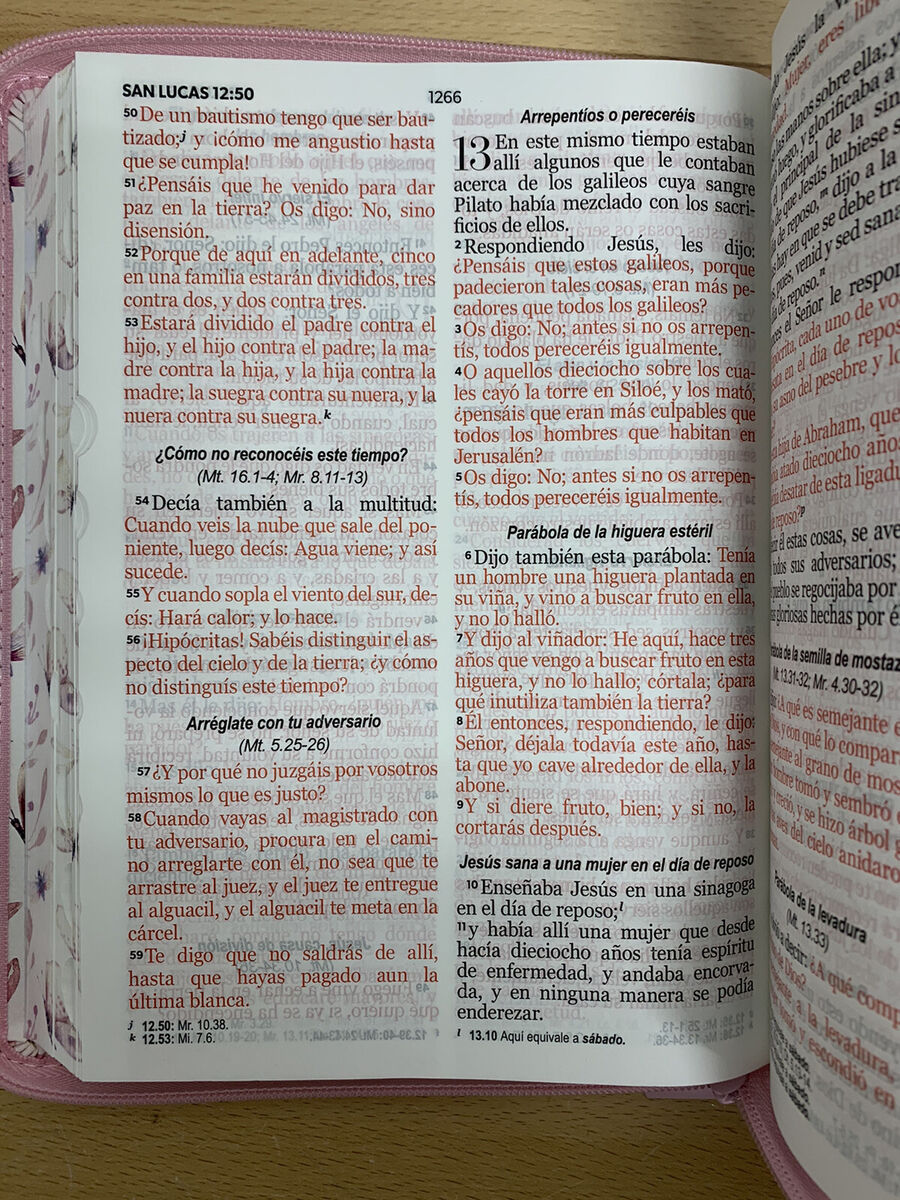 SAN LUCAS 12:50
1266
50 De un bautismo tengo que ser bau-
tizado;j y ¡cómo me angustio hasta
que se cumpla!
51 ¿Pensáis que he venido para dar
paz en la tierra? Os digo: No, sino
disensión.
52 Porque de aquí en adelante, cinco
en una familia estarán divididos, tres
contra dos, y dos contra tres.
53 Estará dividido el padre contra el
hijo, y el hijo contra el padre; la ma-
dre contra la hija, y la hija contra la
madre; la suegra contra su nuera, y la
nuera contra su suegra.k
¿Cómo no reconocéis este tiempo?
(Mt. 16.1-4; Mr. 8.11-13)
54 Decía también a la multitud:
Cuando veis la nube que sale del po-
niente, luego decís: Agua viene; y así
sucede.
55 Y cuando sopla el viento del sur, de-
cís: Hará calor; y lo hace.
56 ¡Hipócritas! Sabéis distinguir el as-
pecto del cielo y de la tierra; ¿y cómo
no distinguís este tiempo?
Arréglate con tu adversario
(Mt. 5.25-26)
57 ¿Y por qué no juzgáis por vosotros
mismos lo que es justo?
58 Cuando vayas al magistrado con
tu adversario, procura en el cami-
no arreglarte con él, no sea que te
arrastre al juez, y el juez te entregue
al alguacil, y el alguacil te meta en la
cárcel.
59 Te digo que no saldrás de allí,
hasta que hayas pagado aun la
última blanca.
j 12.50: Mr. 10.38.
k 12.53: Mi. 7.6.
Arrepentíos o pereceréis
13 En este mismo tiempo estaban
allí algunos que le contaban
acerca de los galileos cuya sangre
Pilato había mezclado con los sacri-
ficios de ellos.
2 Respondiendo Jesús, les dijo:
¿Pensáis que estos galileos, porque
padecieron tales cosas, eran más pe-
cadores que todos los galileos?
3 Os digo: No; antes si no os arrepen-
tís, todos pereceréis igualmente.
4 O aquellos dieciocho sobre los cua-
les cayó la torre en Siloé, y los mató,
¿pensáis que eran más culpables que
todos los hombres que habitan en
Jerusalén?
5 Os digo: No; antes si no os arrepen-
tís, todos pereceréis igualmente.
Parábola de la higuera estéril
6 Dijo también esta parábola: Tenía
un hombre una higuera plantada en
su viña, y vino a buscar fruto en ella,
y no lo halló.
7 Y dijo al viñador: He aquí, hace tres
años que vengo a buscar fruto en esta
higuera, y no lo hallo; córtala; ¿para
qué inutiliza también la tierra?
8 Él entonces, respondiendo, le dijo:
Señor, déjala todavía este año, has-
ta que yo cave alrededor de ella, y la
abone.
9 Y si diere fruto, bien; y si no, la
cortarás después.
Jesús sana a una mujer en el día de reposo
10 Enseñaba Jesús en una sinagoga
en el día de reposo;l
11 y había allí una mujer que desde
hacía dieciocho años tenía espíritu
de enfermedad, y andaba encorva-
da, y en ninguna manera se podía
enderezar.
l 13.10 Aquí equivale a sábado.
Jesús la
Mujer, eres
las manos sobre ella; y
luego, y glorificaba a
principal de la
de que Jesús hubiese
de reposo,m dijo a la
hay en que se debe
pues, venid y sed
de reposo.n
el Señor le
cada uno de
en el día de
asno del pesebre y
hija de Abraham, que
atado dieciocho
desatar de esta
reposo?p
él estas cosas, se
sus adversarios;
pueblo se regocijaba por
gloriosas hechas por
de la semilla de
Mt. 13.31-32; Mr. 4.30-32)
¿A qué es semejante
y con qué lo
al grano de
hombre tomó y sembró
creció, y se hizo árbol
aves del cielo
Parábola de la levadura
(Mt. 13.33)
a decir: ¿A qué
de Dios?
a la levadura,
y escondió en